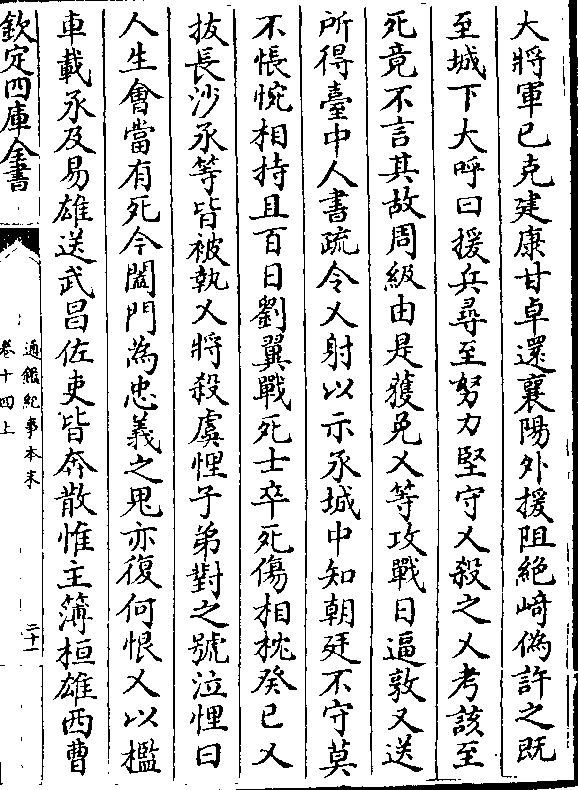 大將軍已克建康甘卓還襄陽外援阻絶﨑偽許之既
至城下大呼曰援兵尋至努力堅守乂殺之乂考該至
死竟不言其故周級由是獲免乂等攻戰日逼敦又送
所得臺中人書疏令乂射以示承城中知朝廷不守莫
不悵惋相持且百日劉翼戰死士卒死傷相枕癸巳乂
拔長沙承等皆被執乂將殺虞悝子弟對之號泣悝曰
人生會當有死今闔門為忠義之鬼亦復何恨乂以檻
車載承及易雄送武昌佐吏皆奔散惟主簿桓雄西曹
欽定四庫全書
通鑑紀事本末
卷十四上
二十一